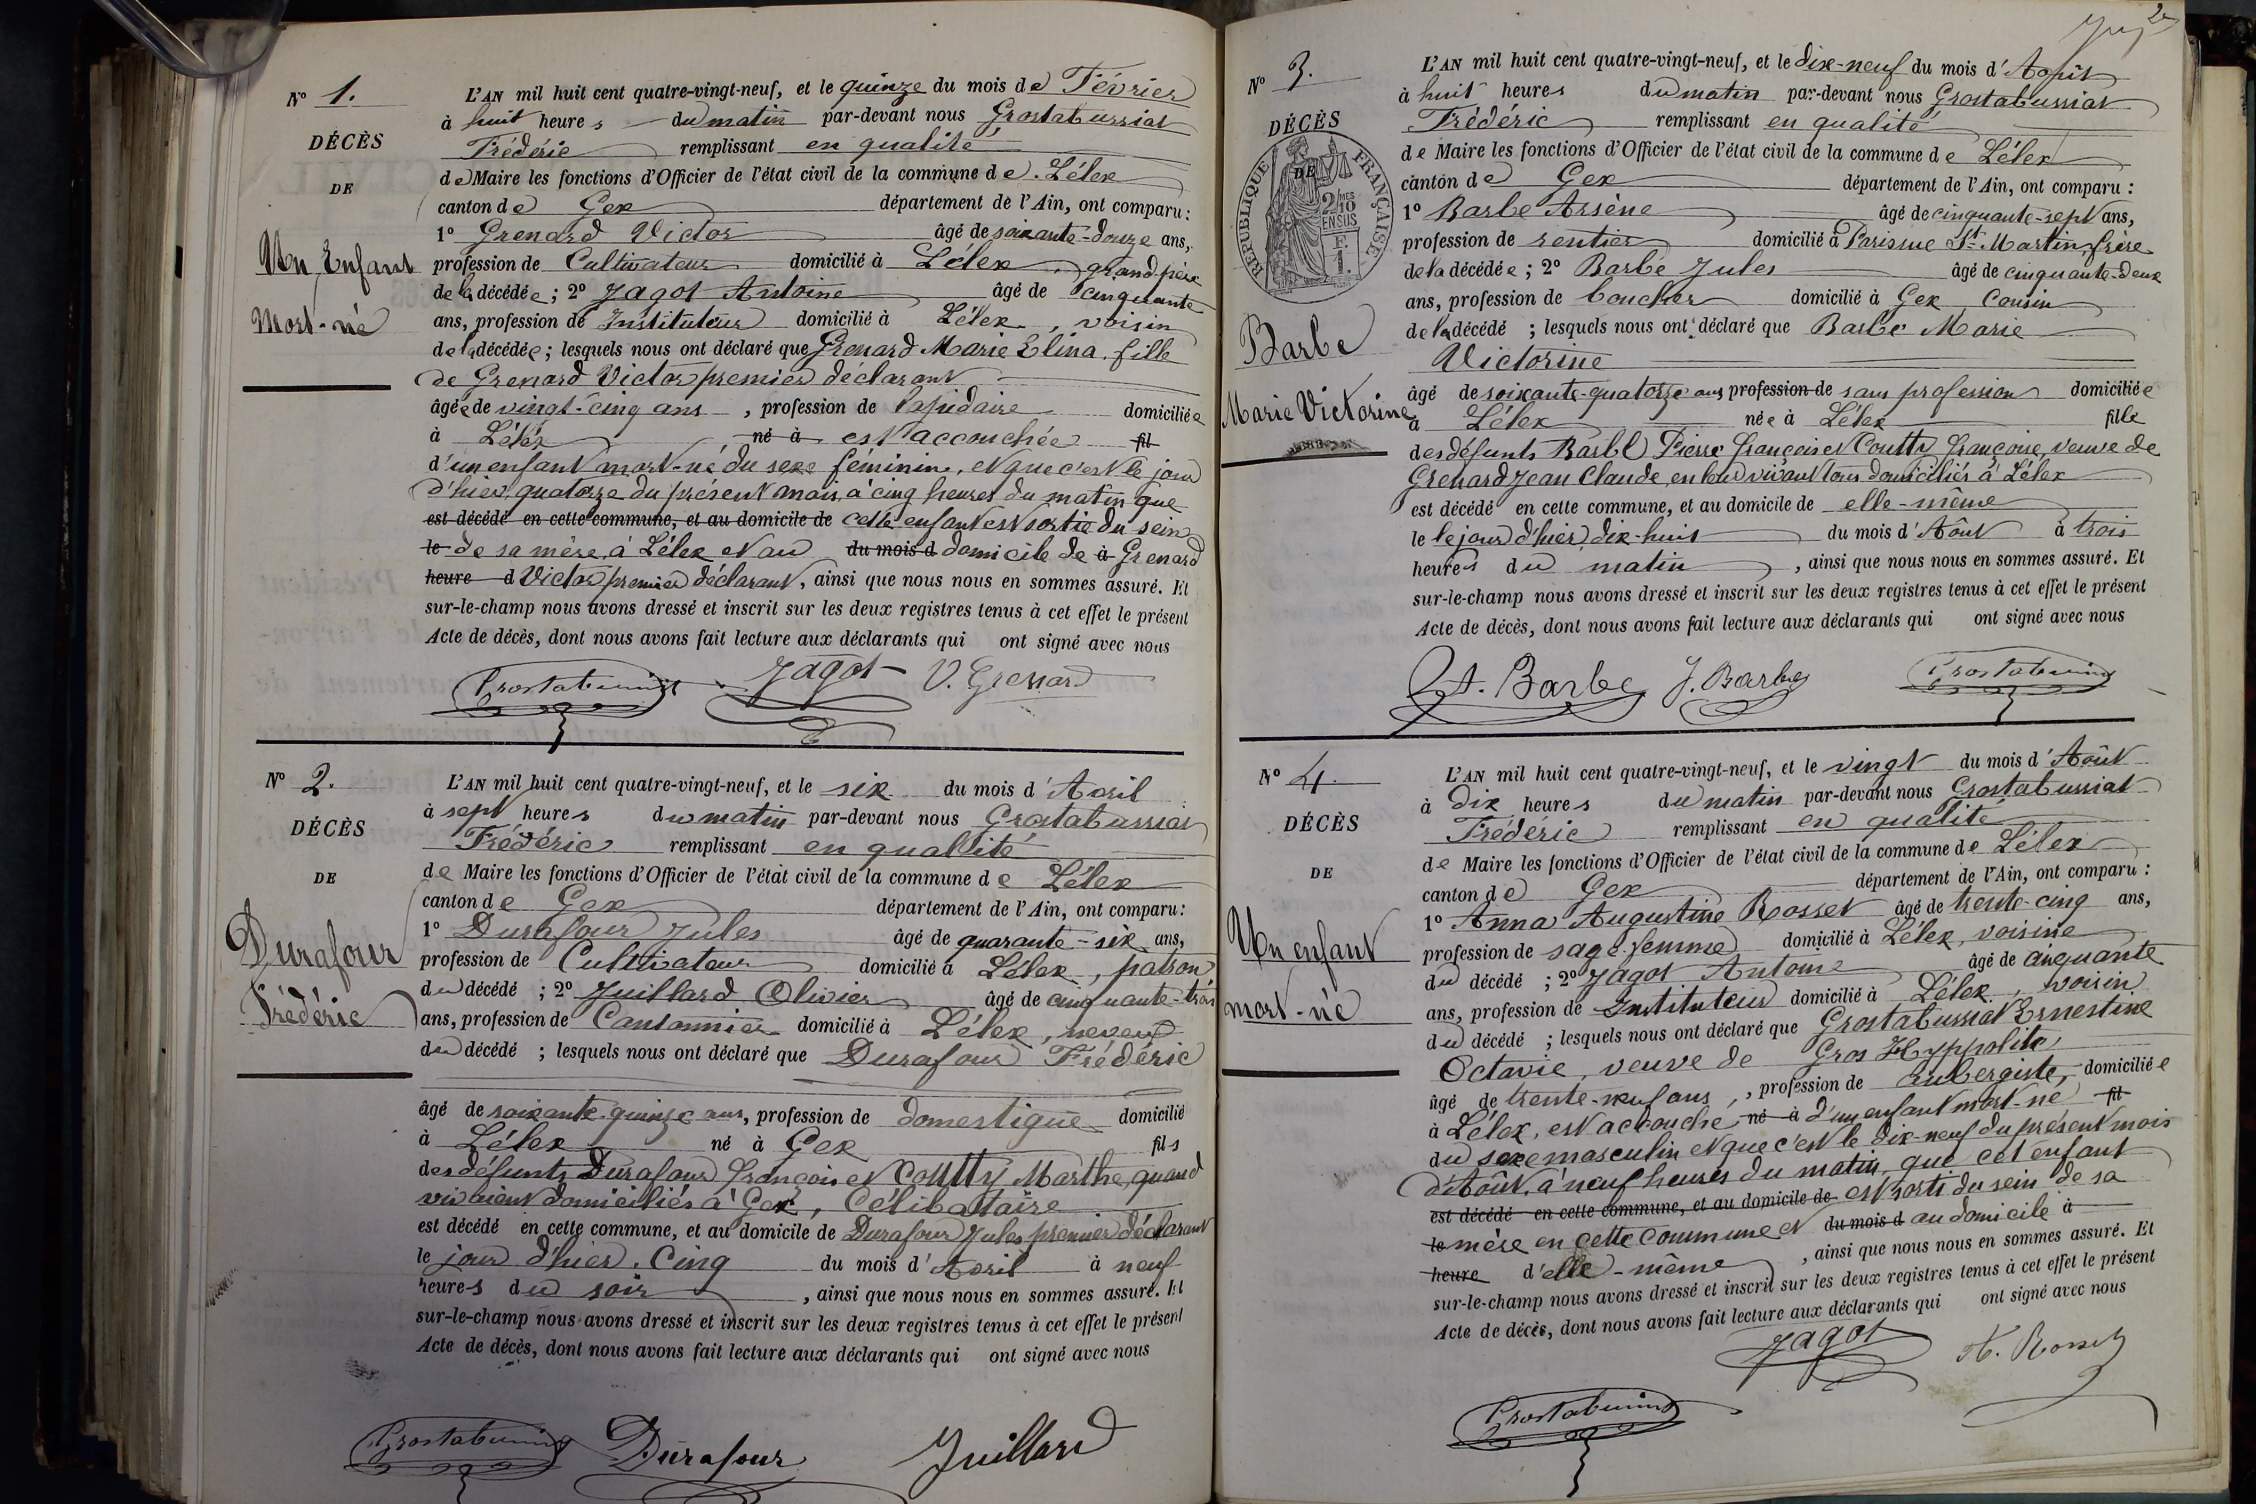 N° 1.
DÉCÈS
DE
Un Enfant
Mort-né
L'AN mil huit cent quatre-vingt-neuf, et le quinze du mois de Février
à huit heures du matin par-devant nous Grostabussiat
Frédéric remplissant en qualité
de Maire les fonctions d'Officier de l'état civil de la commune de Lélex
canton de Gex département de l'Ain, ont comparu :
1° Grenard Victor âgé de soixante-douze ans,
profession de Cultivateur domicilié à Lélex, grand-père
de la décédée ; 2° Jagot Antoine âgé de cinquante
ans, profession de Instituteur domicilié à Lélex, voisin
de la décédée ; lesquels nous ont déclaré que Grenard Marie Elina, fille
de Grenard Victor premier déclarant
âgée de vingt-cinq ans, profession de lapidaire domiciliée
à Lélex né à est accouchée fil
d'un enfant mort-né du sexe féminin, et que c'est le jour
d'hier, quatorze du présent mois, à cinq heures du matin que
est décédé en cette commune, et au domicile de cette enfant est sortie du sein
le de sa mère, à Lélex et au du mois d domicile de à Grenard
heure d Victor premier déclarant, ainsi que nous nous en sommes assuré. Et
sur-le-champ nous avons dressé et inscrit sur les deux registres tenus à cet effet le présent
Acte de décès, dont nous avons fait lecture aux déclarants qui ont signé avec nous
Grostabussiat Jagot V. Grenard
N° 2.
DÉCÈS
DE
Durafour
Frédéric
L'AN mil huit cent quatre-vingt-neuf, et le six du mois d'Avril
à sept heures du matin par-devant nous Grostabussiat
Frédéric remplissant en qualité
de Maire les fonctions d'Officier de l'état civil de la commune de Lélex
canton de Gex département de l'Ain, ont comparu :
1° Durafour Jules âgé de quarante-six ans,
profession de Cultivateur domicilié à Lélex, patron
du décédé ; 2° Juillard Olivier âgé de cinquante-trois
ans, profession de Cantonnier domicilié à Lélex, neveu
du décédé ; lesquels nous ont déclaré que Durafour Frédéric
âgé de soixante-quinze ans, profession de domestique domicilié
à Lélex né à Gex fils
des défunts Durafour François et Coutty Marthe, quand
vivaient domiciliés à Gex, Célibataire
est décédé en cette commune, et au domicile de Durafour Jules premier déclarant
le jour d'hier, cinq du mois d'Avril à neuf
heures du soir, ainsi que nous nous en sommes assuré. Et
sur-le-champ nous avons dressé et inscrit sur les deux registres tenus à cet effet le présent
Acte de décès, dont nous avons fait lecture aux déclarants qui ont signé avec nous
Grostabussiat Durafour Juillard
2
N° 3.
DÉCÈS
DE
RÉPUBLIQUE FRANÇAISE
2/10MES
EN SUS
F.
1.
Barbe
Marie Victorine
L'AN mil huit cent quatre-vingt-neuf, et le dix-neuf du mois d'Août
à huit heures du matin par-devant nous Grostabussiat
Frédéric remplissant en qualité
de Maire les fonctions d'Officier de l'état civil de la commune de Lélex
canton de Gex département de l'Ain, ont comparu :
1° Barbe Arsène âgé de cinquante-sept ans,
profession de rentier domicilié à Parisme St-Martin, frère
de la décédée ; 2° Barbe Jules âgé de cinquante-deux
ans, profession de boucher domicilié à Gex cousin
de la décédé ; lesquels nous ont déclaré que Barbe Marie
Victorine
âgé de soixante-quatorze ans profession de sans profession domiciliée
à Lélex née à Lélex fille
des défunts Barbe Pierre François et Coutty Françoise, veuve de
Grenard Jean Claude en leur vivant tous domiciliés à Lélex
est décédé en cette commune, et au domicile de elle-même
le le jour d'hier, dix-huit du mois d'Août à trois
heures du matin, ainsi que nous nous en sommes assuré. Et
sur-le-champ nous avons dressé et inscrit sur les deux registres tenus à cet effet le présent
Acte de décès, dont nous avons fait lecture aux déclarants qui ont signé avec nous
A. Barbe J. Barbe Grostabussiat
N° 4.
DÉCÈS
DE
Un enfant
mort-né
L'AN mil huit cent quatre-vingt-neuf, et le vingt du mois d'Août
à dix heures du matin par-devant nous Grostabussiat
Frédéric remplissant en qualité
de Maire les fonctions d'Officier de l'état civil de la commune de Lélex
canton de Gex département de l'Ain, ont comparu :
1° Anna Augustine Rosset âgé de trente-cinq ans,
profession de sage-femme domicilié à Lélex, voisine
du décédé ; 2° Jagot Antoine âgé de cinquante
ans, profession de Instituteur domicilié à Lélex, voisin
du décédé ; lesquels nous ont déclaré que Grostabussiat Ernestine
Octavie, veuve de Gros Hyppolite
âgé de trente-neuf ans, profession de aubergiste, domiciliée
à Lélex, est accouché né à d'un enfant mort-né fil
du sexe masculin et que c'est le dix-neuf du présent mois
d'Août, à neuf heures du matin, que cet enfant
est décédé en cette commune, et au domicile de est sorti du sein de sa
le mère en cette commune et du mois d au domicile à
heure d'elle-même, ainsi que nous nous en sommes assuré. Et
sur-le-champ nous avons dressé et inscrit sur les deux registres tenus à cet effet le présent
Acte de décès, dont nous avons fait lecture aux déclarants qui ont signé avec nous
Jagot A. Rosset
Grostabussiat